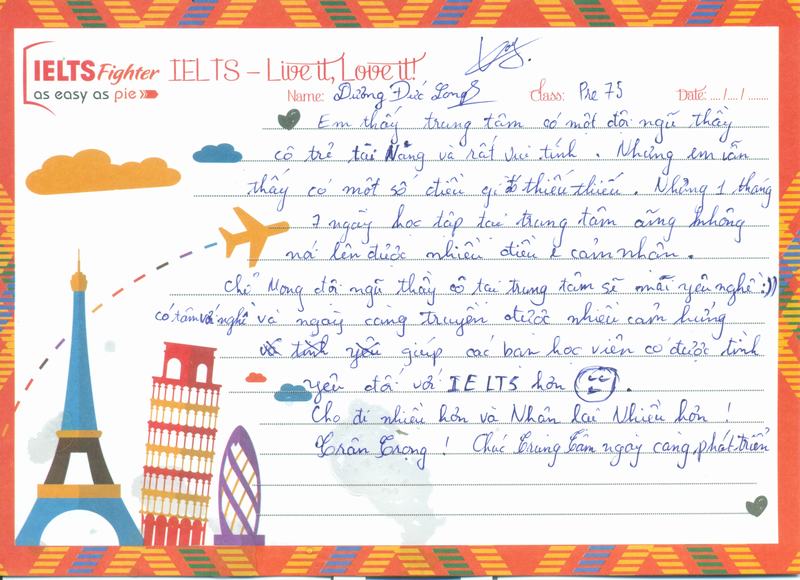 IELTS Fighter
as easy as pie
IELTS – Live it, Love it!
Name: Dương Đức Long Class: Pre 75 Date: .../.../......
Em thấy trung tâm có một đội ngũ thầy
cô trẻ tài Năng và rất vui tính. Nhưng em vẫn
thấy có một số điều gì đó thiếu thiếu. Những 1 tháng
7 ngày học tập tại trung tâm cũng không
nói lên được nhiều điều cảm nhận.
Chỉ Mong đội ngũ thầy cô tại trung tâm sẽ mãi yêu nghề :))
có tâm với nghề và ngày càng truyền được nhiều cảm hứng
giúp các bạn học viên có được tình
yêu đối với IELTS hơn
Cho đi nhiều hơn và Nhận lại Nhiều hơn !
Trân Trọng ! Chúc Trung Tâm ngày càng phát triển